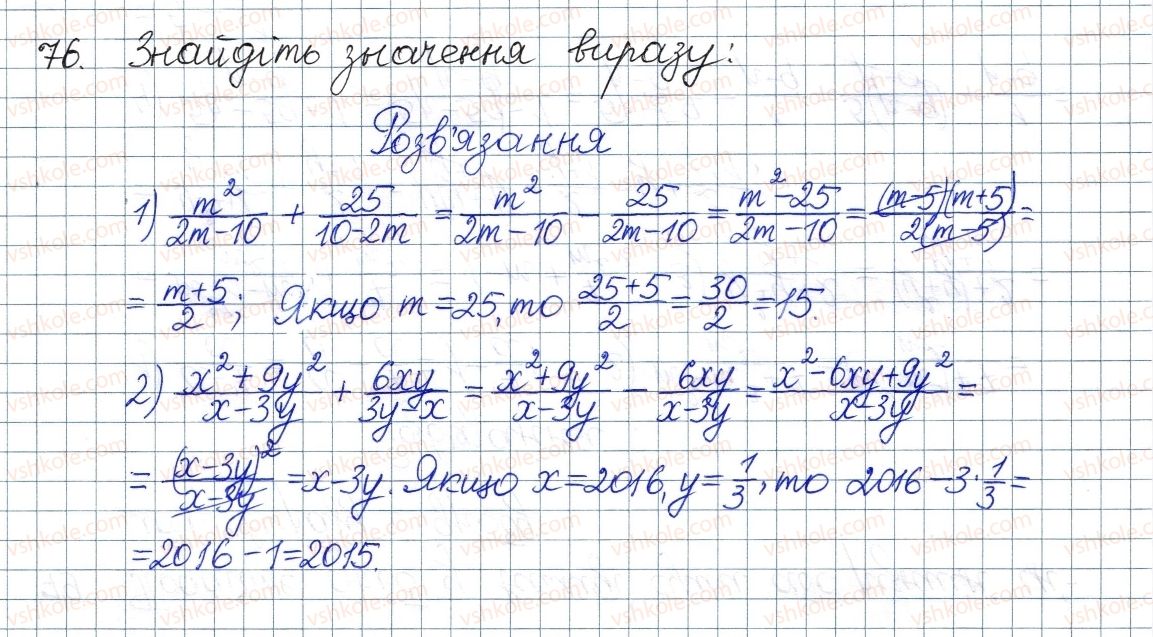 76. Знайдіть значення виразу:
Розв'язання
1) m²/(2m-10) + 25/(10-2m) = m²/(2m-10) - 25/(2m-10) = (m²-25)/(2m-10) = (m-5)(m+5)/2(m-5) =
= (m+5)/2; Якщо m=25, то (25+5)/2 = 30/2 = 15.
2) (x²+9y²)/(x-3y) + 6xy/(3y-x) = (x²+9y²)/(x-3y) - 6xy/(x-3y) = (x²-6xy+9y²)/(x-3y) =
= (x-3y)²/(x-3y) = x-3y. Якщо x=2016, y=1/3, то 2016-3·1/3=
=2016-1=2015.